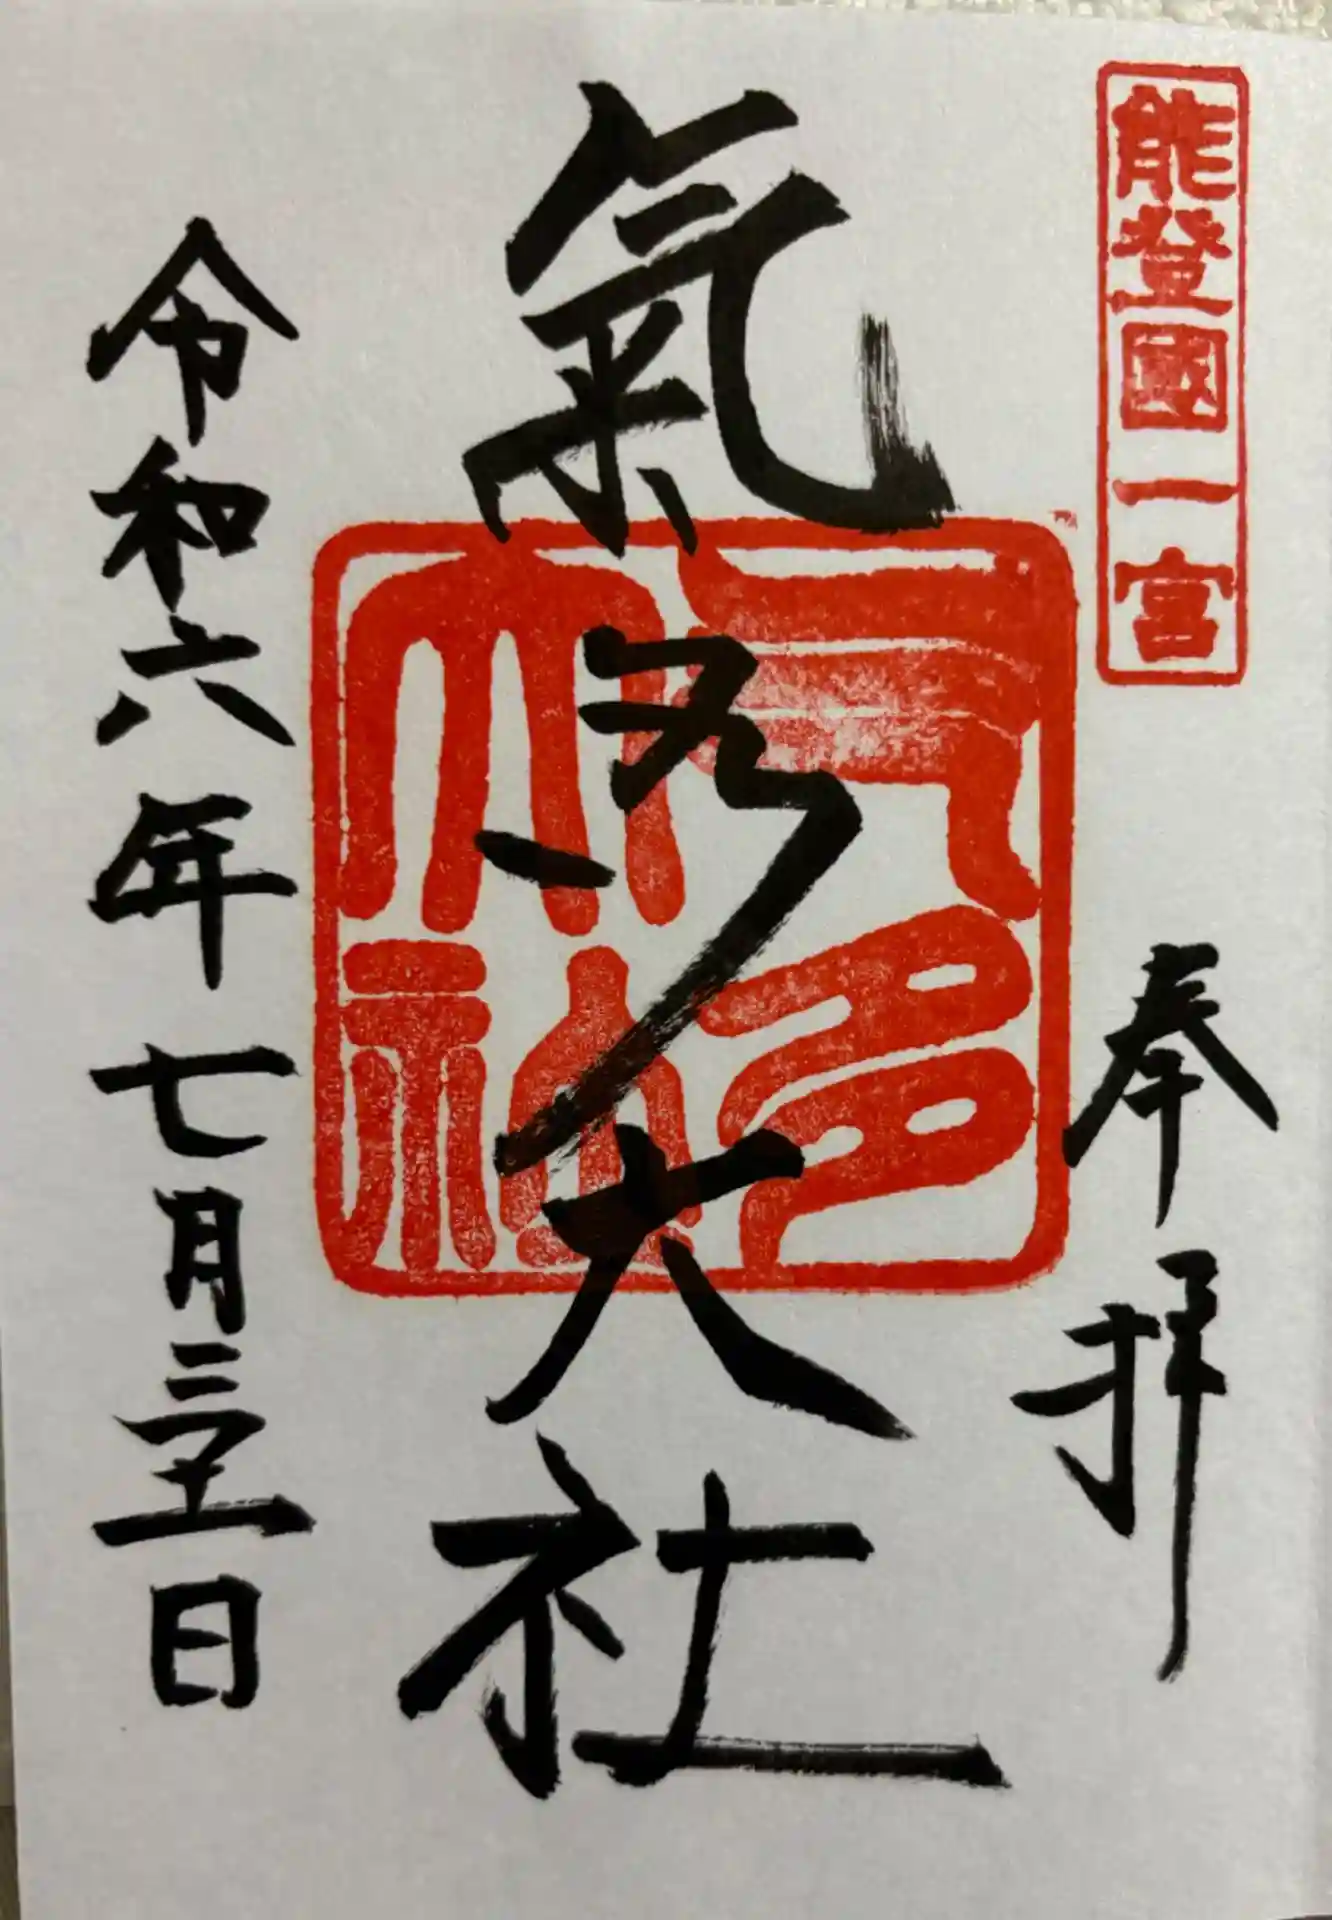 能登國一宮
奉拝
氣多大社
气多
大社
令和六年七月三十一日